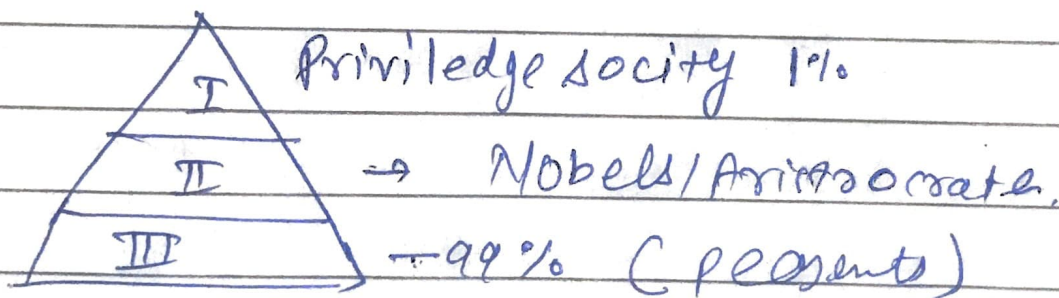 I Priviledge socity 1%
II → Nobels/Aristocrates.
III - 99% (peasents)